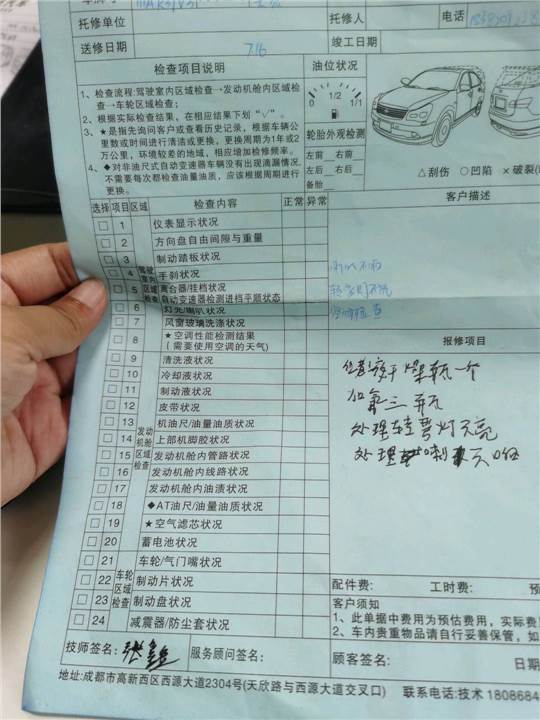 托修单位 托修人 电话
送修日期 7.16 竣工日期
检查项目说明 油位状况
1、检查流程:驾驶室内区域检查→发动机舱内区域检查→车轮区域检查;
2、根据实际检查结果,在相应结果下划“√”。
3、★是指先询问客户或查看历史记录,根据车辆公里数或时间进行清洁或更换,更换周期为1年或2万公里,环境较差的地域,相应增加检修频率。
4、◆对非油尺式自动变速器车辆没有出现滴漏情况,不需要每次都检查油量油质,应该根据周期进行更换。
0 1/2 1/1
轮胎外观检测
左前 右前
左后 右后
备胎
△刮伤 ○凹陷 ×破裂
选择 项目 区域 检查内容 正常 异常 客户描述
驾驶室内区域检查
1 仪表显示状况
2 方向盘自由间隙与重量
3 制动踏板状况
4 手刹状况
5 离合器/挂档状况
自动变速器检测进档平顺状态
6 灯光/喇叭状况
7 风窗玻璃洗涤状况
8 ★空调性能检测结果
(需要使用空调的天气)
发动机舱区域检查
9 清洗液状况
10 冷却液状况
11 制动液状况
12 皮带状况
13 机油尺/油量油质状况
14 上部机脚胶状况
15 发动机舱内管路状况
16 发动机舱内线路状况
17 发动机舱内油渍状况
18 ◆AT油尺/油量油质状况
19 ★空气滤芯状况
20 蓄电池状况
车轮区域检查
21 车轮/气门嘴状况
22 制动片状况
23 制动盘状况
24 减震器/防尘套状况
报修项目
一个
加氟三瓶
处理 灯不亮
处理 喇叭不响
配件费: 工时费:
客户须知
1、此单据中费用为预估费用,实际费
2、车内贵重物品请自行妥善保管,如
技师签名: 张鑫 服务顾问签名: 顾客签名: 日期
地址:成都市高新西区西源大道2304号(天欣路与西源大道交叉口) 联系电话:技术 1808684